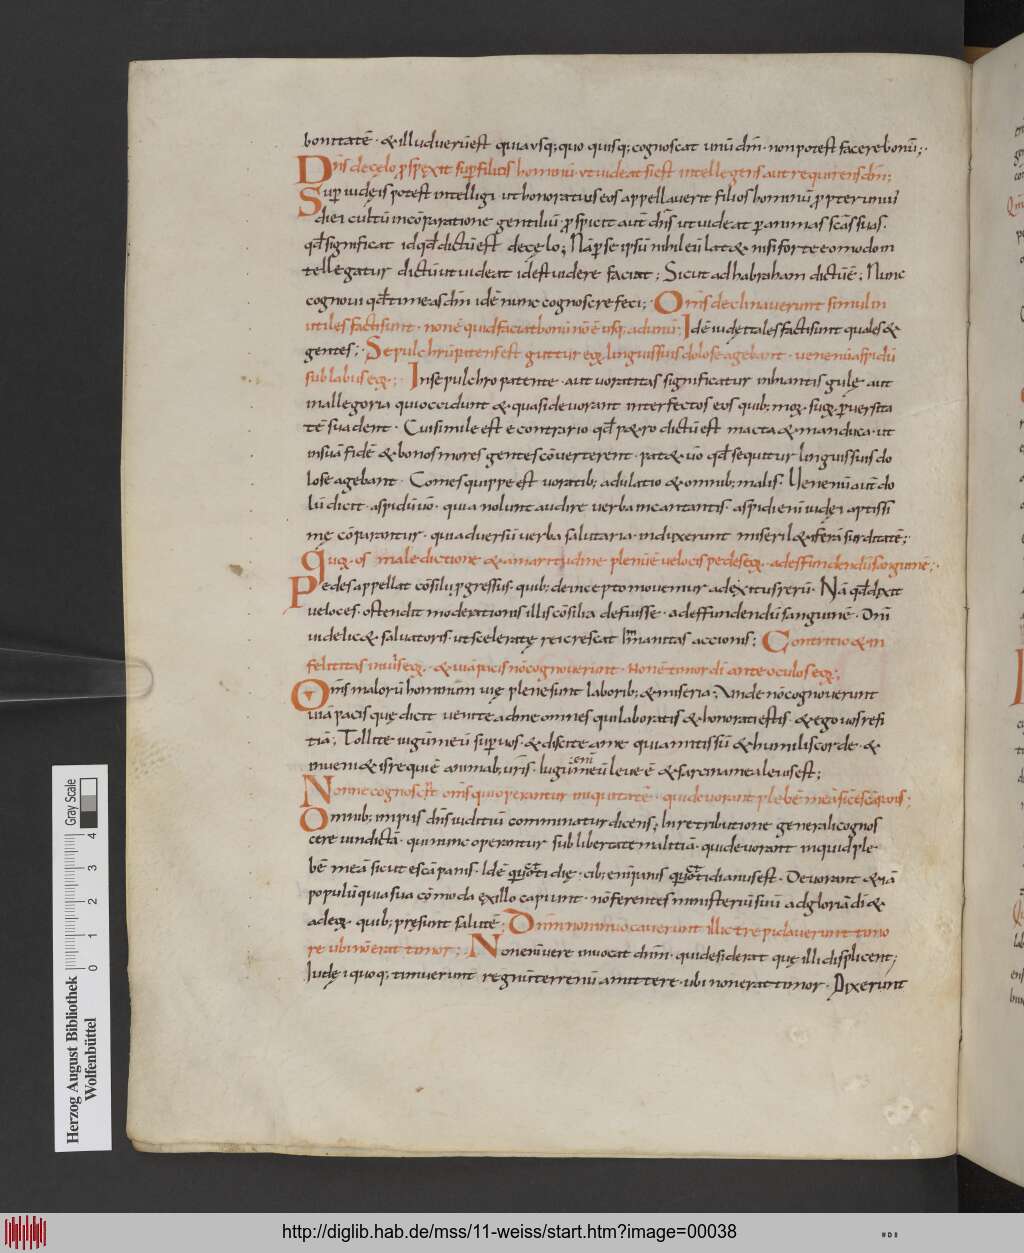 bonitatē · & illud verū est quia vsq; quo quisq; cognoscat unū dm̄ · non potest facere bonū; ·
Dn̄s de cęlo ꝓspexit sup filios hominū · ut videat si est intellegens aut requirens dm̄;
Super iudęis potest intelligi ut honoratius eos appellauerit filios hominū propter unius
diei cultū in cōparatione gentiliū; ꝓspicit aut̄ dn̄s ut uideat ꝑ animas sc̄as suas ·
qd̄ significat id qd̄ dictū est de cęlo; Nā ꝑ se ipsū nihil eū lat& nisi forte eo modo in
tellegatur dictū ut uideat id est uidere faciat; Sicut ad habraham dictū ē; Nunc
cognoui qd̄ timeas dm̄ idē nunc cognoscere feci; Om̄s declinauerunt simul in
utiles facti sunt · non ē qui faciat bonū nō ē usq; ad unū; Idē iudęi tales facti sunt quales &
gentes; · Sepulchrū patens est guttur eoꝝ linguis suis dolose agebant · uenenū aspidū
sub labiis eoꝝ; · In sepulchro patente · aut uoracitas significatur inhiantis gulę aut
in allegoria qui occidunt & quasi deuorant interfectos eos quib; moꝝ suoꝝ peruersita
tē suadent · Cui simile est e contrario qd̄ p&ro dictū est macta & manduca · ut
in suā fidē & bonos mores gentes cōuerterent · pat& uō qd̄ sequitur linguis suis do
lose agebant · Comes quippe est uoracib; adulatio & omnib; malis · Uenenū aut̄ do
lū dicit · aspidū uō · quia nolunt audire uerba incantantis · aspidi enī iudęi aptissi
mę cōparantur · qui aduersū uerba salutaria induxerunt miserū & ferā surditatē; ·
Quoꝝ os maledictione & amaritudine plenū ē ueloces pedes eoꝝ · ad effundendū sanguinē; ·
Pedes appellat cōsilii ꝓgressus · quib; deinceps mouemur ad exitus rerū · Nā qd̄ dixit
ueloces · ostendit moderationis illis cōsilia defuisse · ad effundendū sanguinē · Dn̄i
uidelic& saluatoris · ut sceleratę rei crescat inmanitas accionis; Contritio & in
felicitas in uiis eoꝝ · & uiā pacis nō cognouerunt · Non ē timor dī ante oculos eoꝝ;
Om̄s malorū hominum uię plenę sunt laborib; & miseria; Unde nō cognouerunt
uiā pacis quę dicit uenite ad me omnes qui laboratis & honorati estis · & ego uos refi
tiā; Tollite iugū meū super uos · & discite a me quia mitis sū & humilis corde · &
inueni&is requiē animab; uris · Iugū enī meū leue ē & sarcina mea leuis est;
Nonne cognoscent om̄s qui operantur iniquitatē · qui deuorant plebē meā sic̄ escā panis;
Omnib; impiis dn̄s iudiciū comminatur dicens; In retributione generali cognos
cere uindictā · qui nunc operantur sub libertate malitiā · qui deuorant inquid ple
bē meā sicut escā panis · Idē quottidię · cib; enī panis quottidianus est · Deuorant & iā
populū qui a sua cōmoda ex illo capiunt · nō ferentes ministeriū suū ad gloriā dī &
ad eoꝝ · quib; pręsunt salutē; Dn̄m non inuocauerunt illic trepidauerunt timo
re ubi nō erat timor; · Non enī uere inuocat dn̄m · qui desiderat quę illi displicent;
Iudęi quoq; timuerunt regnū terrenū amittere · ubi non erat timor · Dixerunt
Herzog August Bibliothek
Wolfenbüttel
0 1 2 3 4
Gray Scale
http://diglib.hab.de/mss/11-weiss/start.htm?image=00038